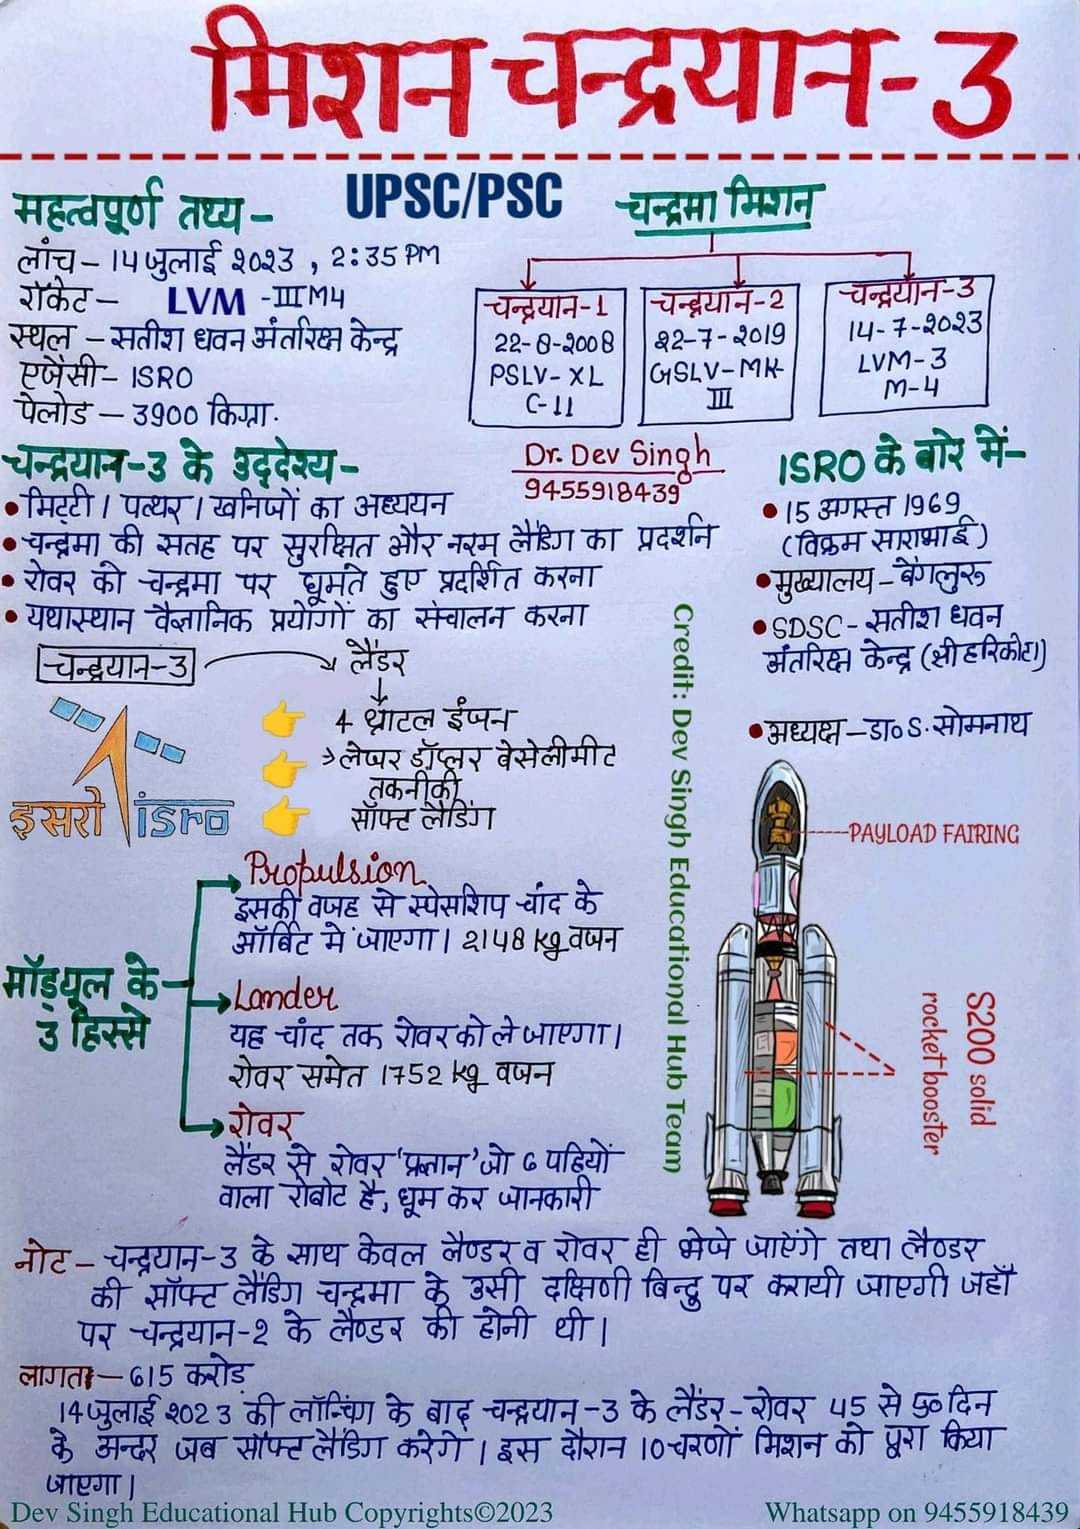 मिशन चन्द्रयान-3
UPSC/PSC
महत्वपूर्ण तथ्य -
लांच - 14 जुलाई २०२३ , २:35 PM
रॉकेट - LVM -III M4
स्थल - सतीश धवन अंतरिक्ष केन्द्र
एजेंसी - ISRO
पेलोड - 3900 किग्रा.
चन्द्रमा मिशन
चन्द्रयान-1
22-8-2008
PSLV-XL
C-11
चन्द्रयान-2
22-7-2019
GSLV-MK-
III
चन्द्रयान-3
14-7-2023
LVM-3
M-4
चन्द्रयान-3 के उद्देश्य-
• मिट्टी । पत्थर । खनिजों का अध्ययन
• चन्द्रमा की सतह पर सुरक्षित और नरम लैंडिग का प्रदर्शन
• रोवर को चन्द्रमा पर घूमते हुए प्रदर्शित करना
• यथास्थान वैज्ञानिक प्रयोगों का संचालन करना
Dr. Dev Singh
9455918439
ISRO के बारे में-
• 15 अगस्त 1969
(विक्रम साराभाई)
• मुख्यालय - बेंगलुरू
• SDSC - सतीश धवन
अंतरिक्ष केन्द्र (श्रीहरिकोटा)
• अध्यक्ष - डा० S. सोमनाथ
चन्द्रयान-3
लैंडर
4 थ्रोटल इंजन
लेजर डॉप्लर वेसेलीमीट
तकनीकी
सॉफ्ट लैंडिंग
इसरो isro
Credit: Dev Singh Educational Hub Team
PAYLOAD FAIRING
S200 solid
rocket booster
मॉड्यूल के
3 हिस्से
Propulsion
इसकी वजह से स्पेसशिप चांद के
ऑर्बिट में जाएगा। 2148 kg वजन
Lander
यह चांद तक रोवर को ले जाएगा।
रोवर समेत 1752 kg वजन
रोवर
लैंडर से रोवर 'प्रज्ञान' जो 6 पहियों
वाला रोबोट है, घूम कर जानकारी
नोट - चन्द्रयान-3 के साथ केवल लैण्डर व रोवर ही भेजे जाएंगे तथा लैण्डर
की सॉफ्ट लैंडिग चन्द्रमा के उसी दक्षिणी बिन्दु पर करायी जाएगी जहाँ
पर चन्द्रयान-२ के लैण्डर की होनी थी।
लागत - 615 करोड़
14 जुलाई २०२3 की लॉन्चिंग के बाद चन्द्रयान-3 के लैंडर-रोवर 45 से 50 दिन
के अन्दर जब सॉफ्ट लैंडिग करेगें। इस दौरान 10 चरणों मिशन को पूरा किया
जाएगा।
Dev Singh Educational Hub Copyrights©2023
Whatsapp on 9455918439